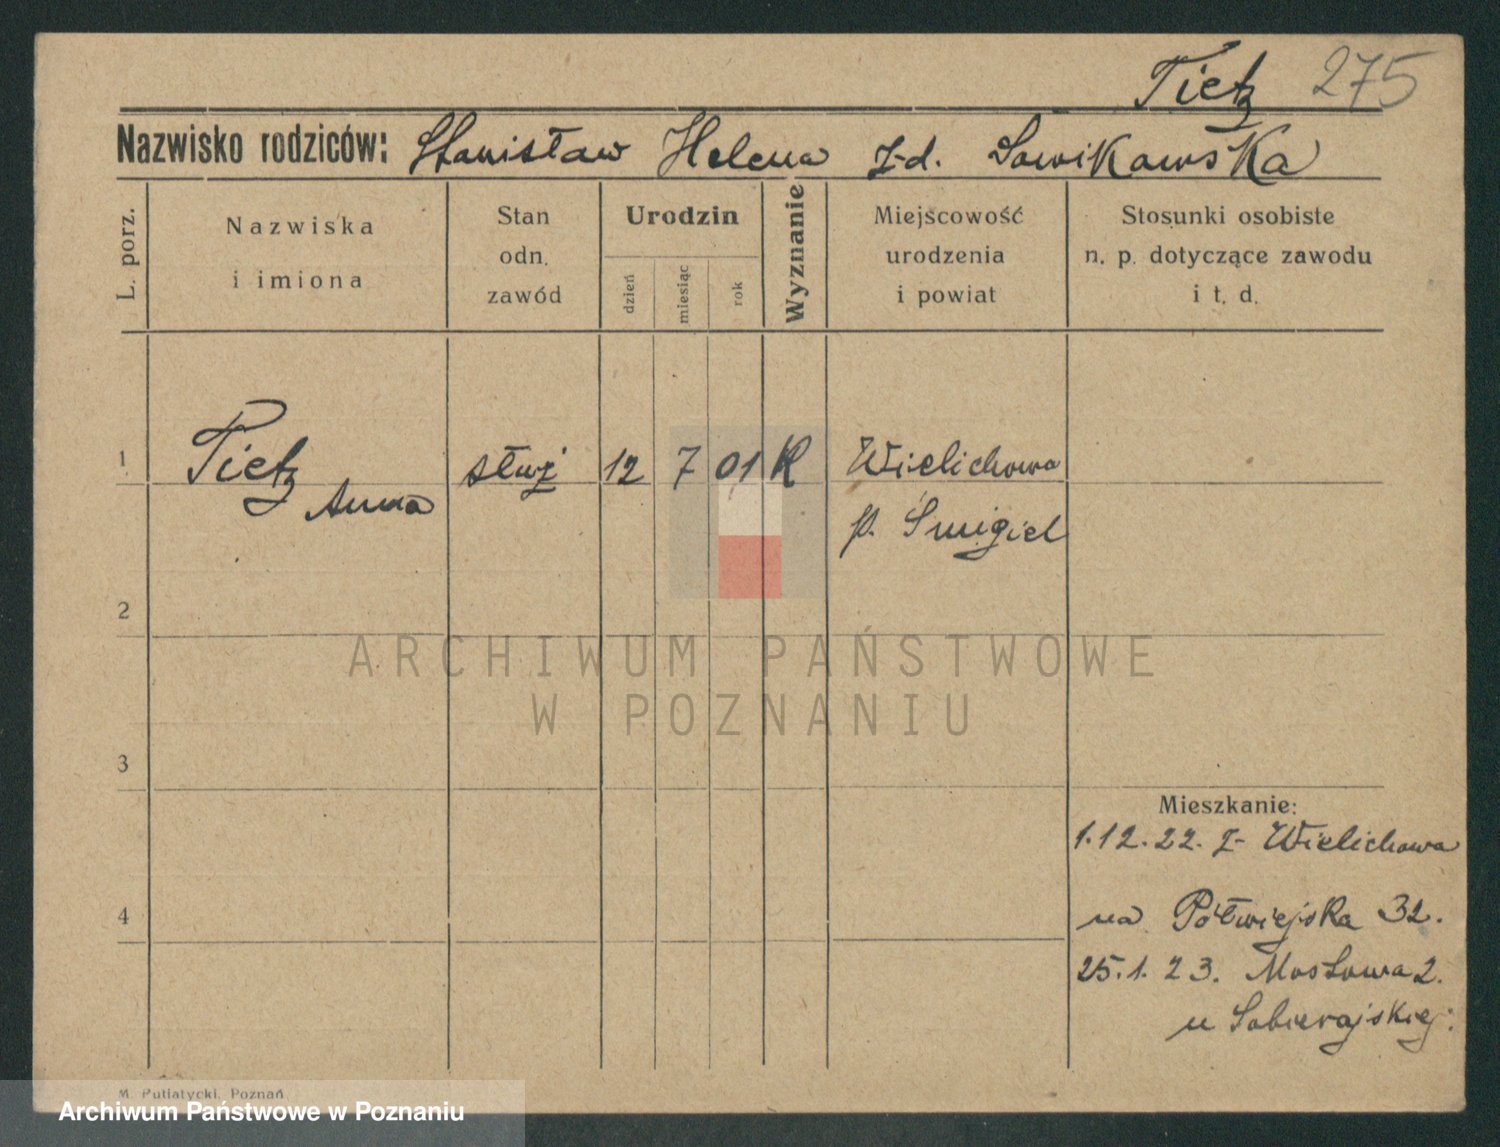 Tietz 275
Nazwisko rodziców: Stanisław Helena z-d. Sowikowska
L. porz.
Nazwiska
i imiona
Stan
odn.
zawód
Urodzin
dzień
miesiąc
rok
Wyznanie
Miejscowość
urodzenia
i powiat
Stosunki osobiste
n. p. dotyczące zawodu
i t. d.
1 Tietz służ 12 7 01 K Wielichowa
Anna p. Śmigiel
2
ARCHIWUM PAŃSTWOWE
W POZNANIU
3
Mieszkanie:
1.12.22. z- Wielichowa
4 na Półwiejska 32.
25.1.23. Mostowa 2.
u Sobierajskiej.
M. Putiatycki, Poznań
Archiwum Państwowe w Poznaniu